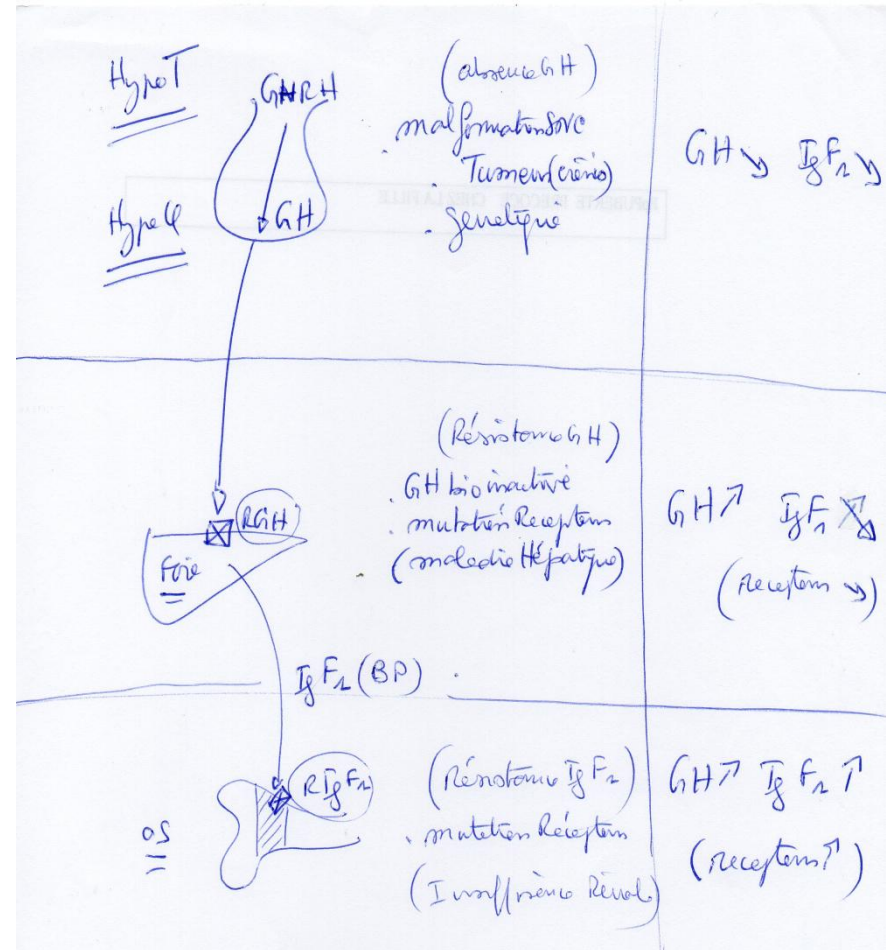 HypoT
GHRH
(absence GH)
. malformation SNC
. Tumeur (crânio)
. génétique
GH ↘ IgF1 ↘
Hypo φ
GH
(Résistance GH)
. GH bioinactive
. mutation Recepteur
(maladie Hépatique)
GH ↗ IgF1 ↘
(Recepteurs ↘)
RGH
Foie
IgF1 (BP)
RIgF1
(Résistance IgF1)
. mutation Récepteur
(Insuffisance Rénale)
GH ↗ IgF1 ↑
(recepteurs ↑)
os